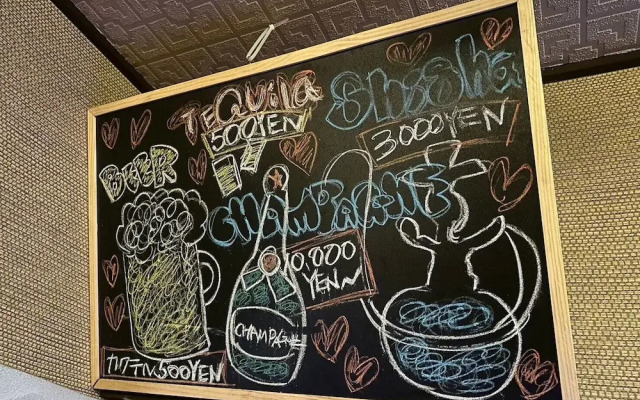 TEQUiLA
500YEN
Shisha
3000YEN
BEER
CHAMPAGNE
10.000
YEN~
CHAMPAGNE
カクテル500YEN